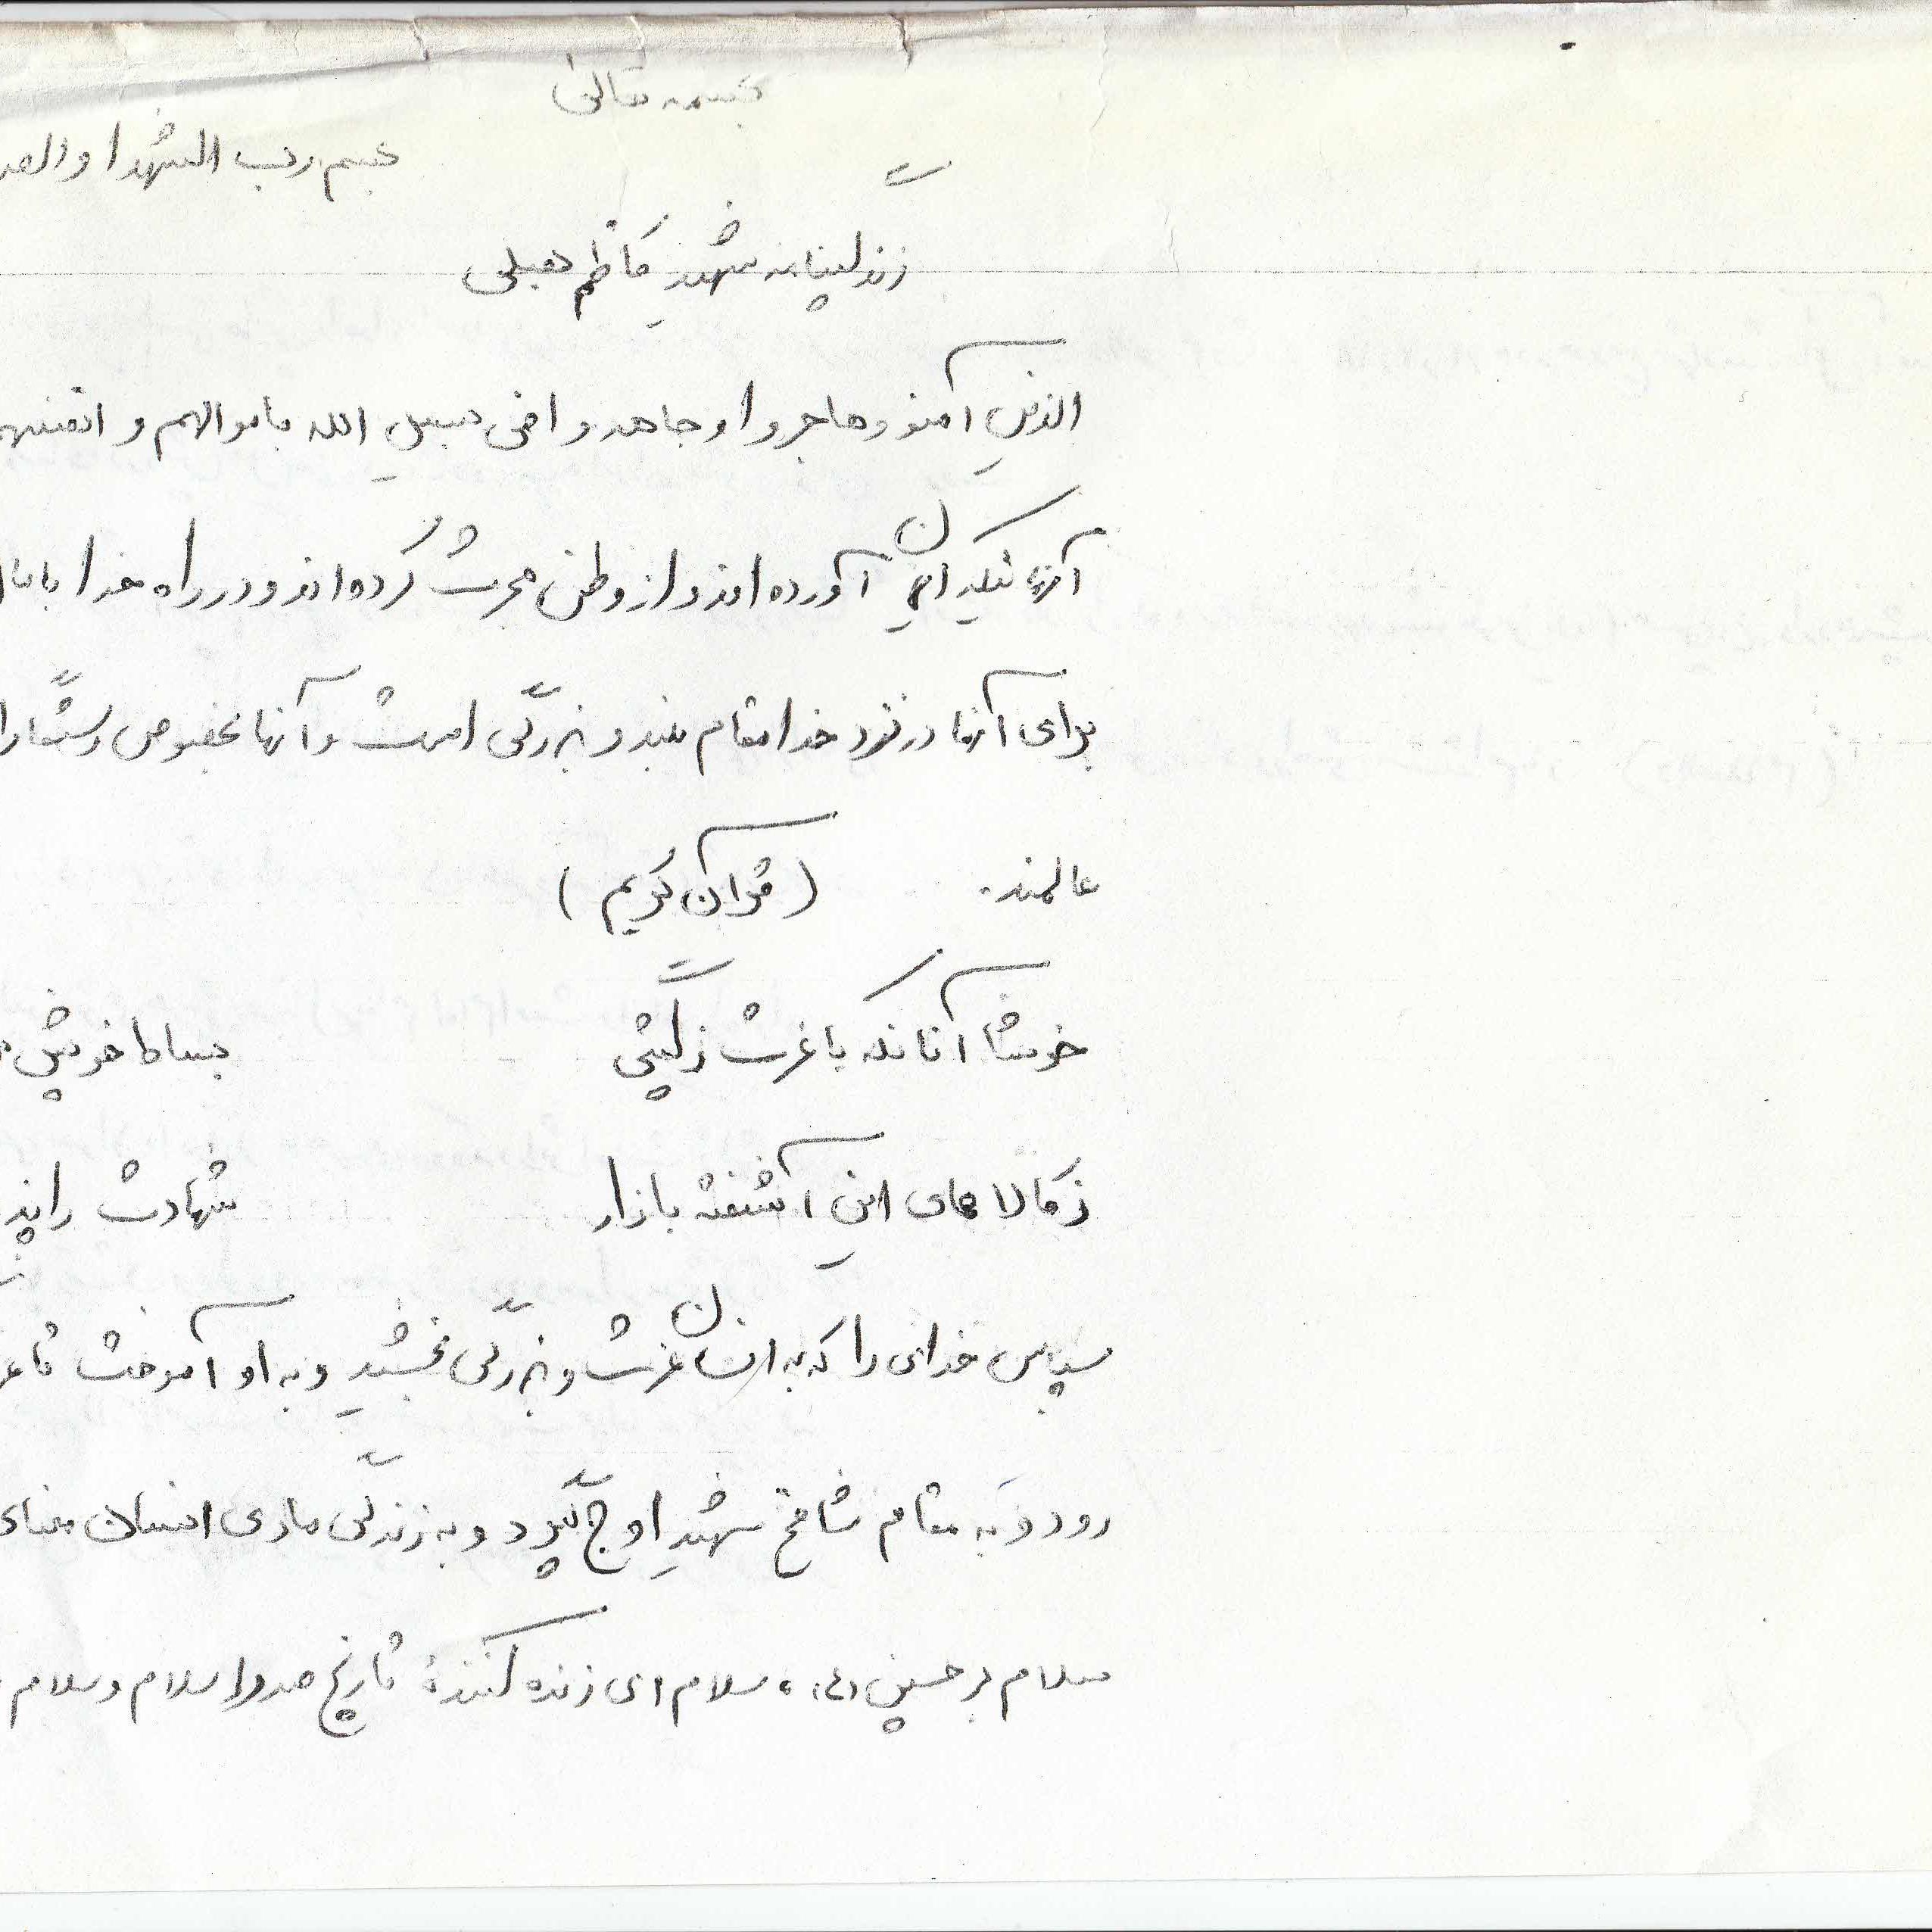 بسمه تعالی
بسم رب الشهدا و
زندگینامه شهید کاظم
الذین آمنو و هاجروا و جاهدوا فی سبیل الله باموالهم و انفسهم
آنانیکه ایمان آورده اند و از وطن هجرت کرده اند و در راه خدا با
برای آنها در نزد خدا مقام بلند و بزرگی است و آنها بخصوص رستگاران
عالمند. (قرآن کریم)
خوشا آنانکه با عزت ز گیتی بساط خویش
ز کالاهای این آشفته بازار شهادت را
سپاس خدای را که به انسان عزت و بزرگی بخشید و به او آموخت تا
رود و به مقام شامخ شهید اوج گیرد و به زندگی مادی انسان معنای
سلام بر حسین (ع)، سلام ای زنده کنندهٔ تاریخ صدر اسلام و سلام